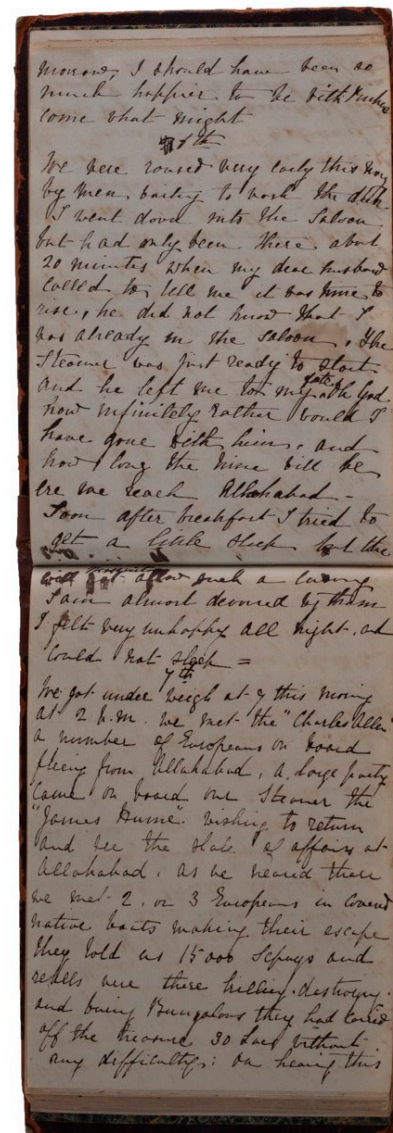 morrow, I should have been so
much happier to be with
come what might
6th
We were roused very early this
by men waiting to wash the deck
I went down into the Saloon
but had only been there about
20 minutes when my dear husband
called to tell me it was time to
rise, he did not know that I
was already in the saloon. The
Steamer was just ready to start
and he left me to my fate, Oh God
how infinitely rather would I
have gone with him. and
how long the time will be
ere we reach Allahabad -
Soon after breakfast I tried to
get a little sleep but the
mosquitoes
will not allow such a luxury
I am almost devoured by them
I felt very unhappy all night. and
could not sleep =
7th
We got under weigh at 7 this morning
at 2 P.M. we met the "Charles Allen"
a number of Europeans on board
fleeing from Allahabad, a large party
came on board our Steamer the
"James Hume" wishing to return
and see the state of affairs at
Allahabad. as we neared there
we met 2. or 3 Europeans in covered
native boats making their escape
they told us 15000 Sepoys and
rebells were there killing. destroying.
and burning Bungalows they had carried
off the treasure 30 Lacs without
any difficulty: on hearing this